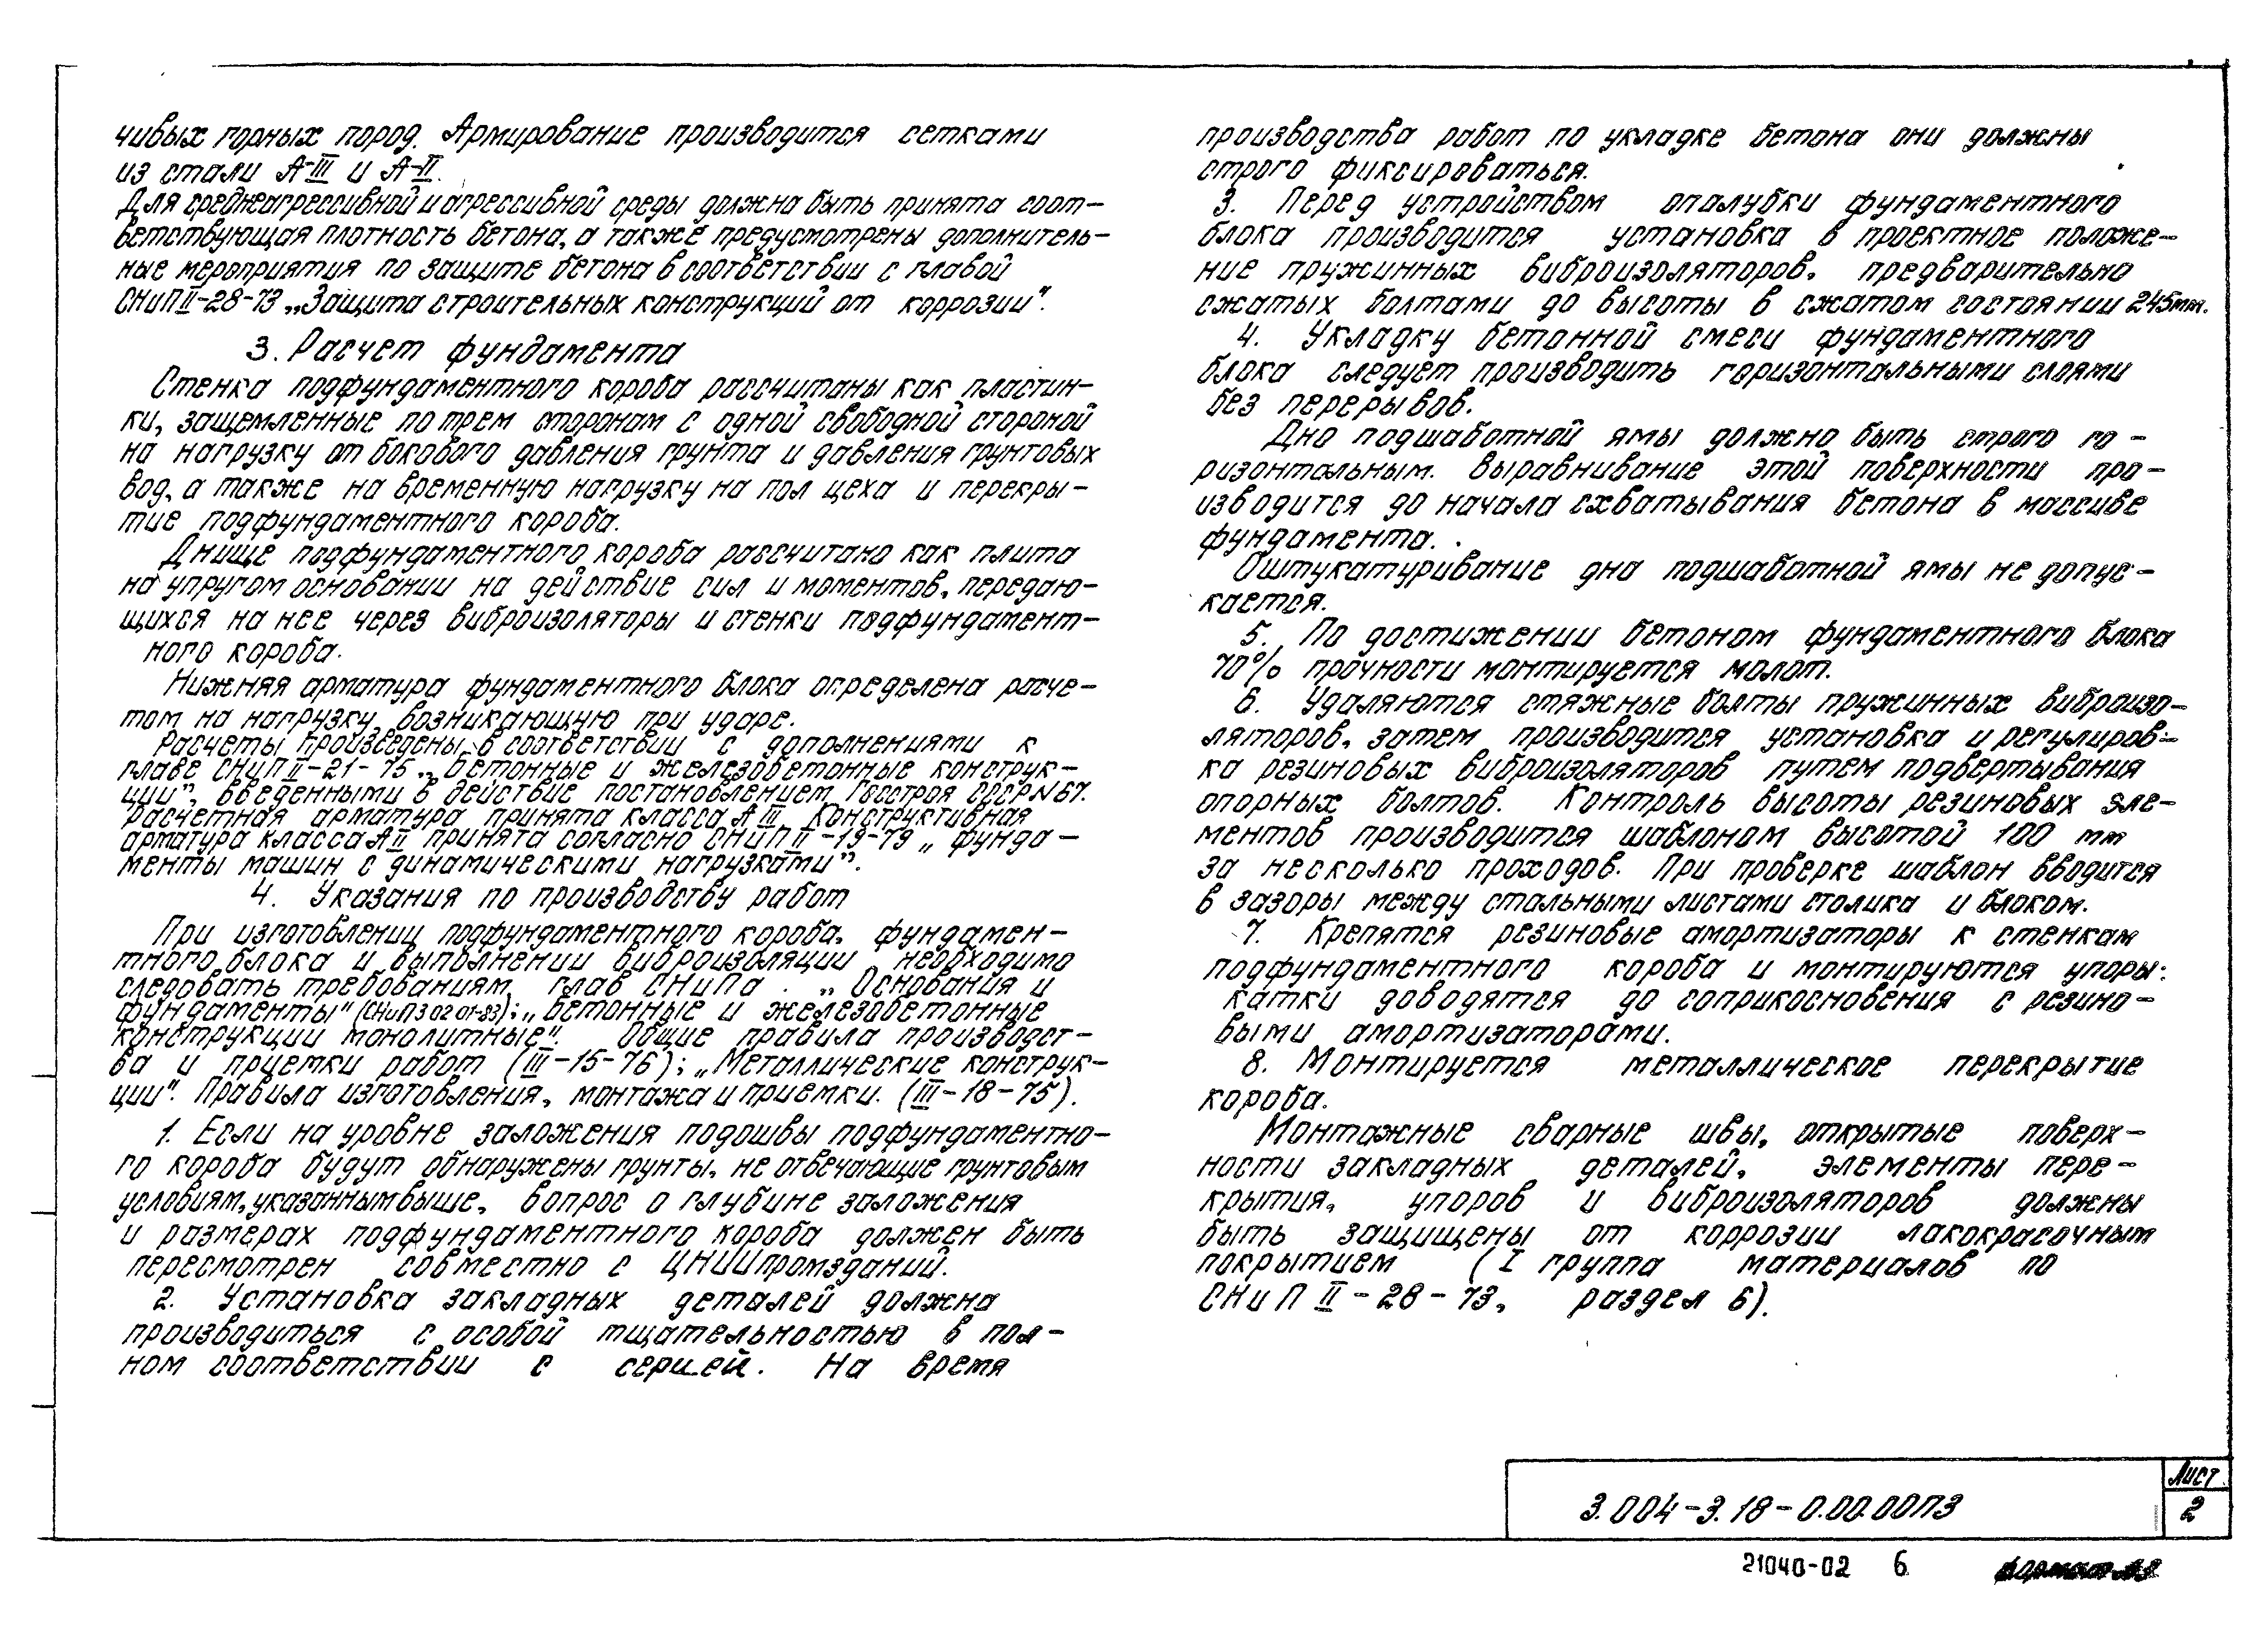 чивых горных пород. Армирование производится сетками
из стали А-III и А-II.
Для среднеагрессивной и агрессивной среды должна быть принята соот-
ветствующая плотность бетона, а также предусмотрены дополнитель-
ные мероприятия по защите бетона в соответствии с главой
СНиП II-28-73 „Защита строительных конструкций от коррозии".
3. Расчет фундамента
Стенка подфундаментного короба рассчитаны как пластин-
ки, защемленные по трем сторонам с одной свободной стороной
на нагрузку от бокового давления грунта и давления грунтовых
вод, а также на временную нагрузку на пол цеха и перекры-
тие подфундаментного короба.
Днище подфундаментного короба рассчитано как плита
на упругом основании на действие сил и моментов, передаю-
щихся на нее через виброизоляторы и стенки подфундамент-
ного короба.
Нижняя арматура фундаментного блока определена расче-
том на нагрузку, возникающую при ударе.
Расчеты произведены в соответствии с дополнениями к
главе СНиП II-21-75 „Бетонные и железобетонные конструк-
ции", введенными в действие постановлением Госстроя СССР N67.
Расчетная арматура принята класса А III. Конструктивная
арматура класса А II принята согласно СНиП II-19-79 „Фунда-
менты машин с динамическими нагрузками".
4. Указания по производству работ
При изготовлении подфундаментного короба, фундамен-
тного блока и выполнении виброизоляции необходимо
следовать требованиям глав СНиПа . „Основания и
фундаменты" (СНиП 3 02 01-83); „Бетонные и железобетонные
конструкции монолитные". Общие правила производст-
ва и приемки работ (III-15-76); „Металлические конструк-
ции". Правила изготовления, монтажа и приемки. (III-18-75).
1. Если на уровне заложения подошвы подфундаментно-
го короба будут обнаружены грунты, не отвечающие грунтовым
условиям, указанным выше, вопрос о глубине заложения
и размерах подфундаментного короба должен быть
пересмотрен совместно с ЦНИИпромзданий.
2. Установка закладных деталей должна
производиться с особой тщательностью в пол-
ном соответствии с серией. На время
производства работ по укладке бетона они должны
строго фиксироваться.
3. Перед устройством опалубки фундаментного
блока производится установка в проектное положе-
ние пружинных виброизоляторов, предварительно
сжатых болтами до высоты в сжатом состоянии 245мм.
4. Укладку бетонной смеси фундаментного
блока следует производить горизонтальными слоями
без перерывов.
Дно подшаботной ямы должно быть строго го-
ризонтальным. Выравнивание этой поверхности про-
изводится до начала схватывания бетона в массиве
фундамента.
Оштукатуривание дна подшаботной ямы не допус-
кается.
5. По достижении бетоном фундаментного блока
70% прочности монтируется молот.
6. Удаляются стяжные болты пружинных виброизо-
ляторов, затем производится установка и регулиров-
ка резиновых виброизоляторов путем подвертывания
опорных болтов. Контроль высоты резиновых эле-
ментов производится шаблоном высотой 100 мм
за несколько проходов. При проверке шаблон вводится
в зазоры между стальными листами столика и блоком.
7. Крепятся резиновые амортизаторы к стенкам
подфундаментного короба и монтируются упоры:
катки доводятся до соприкосновения с резино-
выми амортизаторами.
8. Монтируется металлическое перекрытие
короба.
Монтажные сварные швы, открытые поверх-
ности закладных деталей, элементы пере-
крытия, упоров и виброизоляторов должны
быть защищены от коррозии лакокрасочным
покрытием (I группа материалов по
СНиП II-28-73, раздел 6).
3.004-3.18-0.00.00ПЗ
Лист
2
21040-02 6